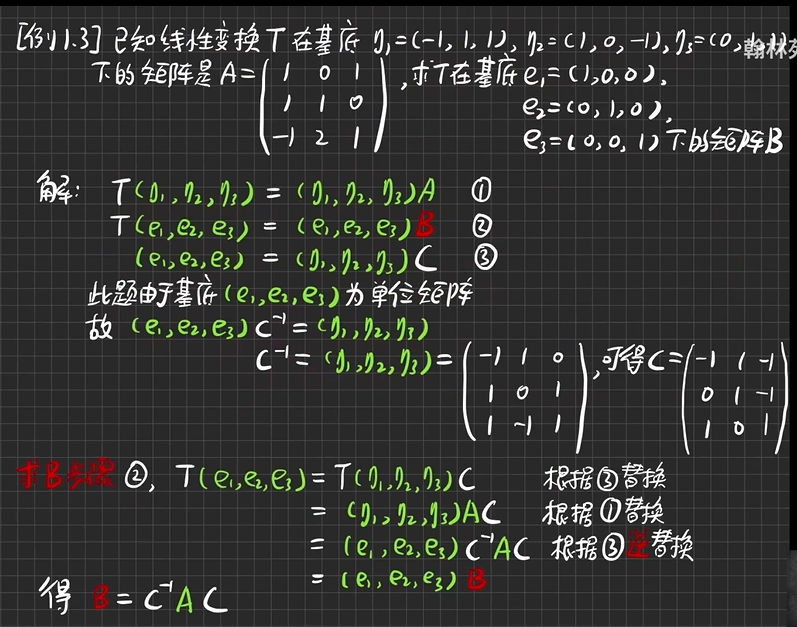 [例1.3] 已知线性变换T在基底 η₁=(-1, 1, 1), η₂=(1, 0, -1), η₃=(0, 1, 1)
翰林苑
下的矩阵是 A= ( 1 0 1 , 求T在基底 e₁=(1,0,0),
1 1 0 e₂=(0, 1, 0),
-1 2 1 ) e₃=(0, 0, 1) 下的矩阵B
解: T(η₁, η₂, η₃) = (η₁, η₂, η₃)A ①
T(e₁,e₂,e₃) = (e₁,e₂,e₃)B ②
(e₁,e₂,e₃) = (η₁,η₂,η₃)C ③
此题由于基底(e₁,e₂,e₃)为单位矩阵
故 (e₁,e₂,e₃)C⁻¹=(η₁,η₂,η₃)
C⁻¹= (η₁,η₂,η₃)= ( -1 1 0 , 可得C= ( -1 1 -1
1 0 1 0 1 -1
1 -1 1 ) 1 0 1 )
求B步骤 ②, T(e₁,e₂,e₃)=T(η₁,η₂,η₃)C 根据③替换
= (η₁,η₂,η₃)AC 根据①替换
= (e₁,e₂,e₃)C⁻¹AC 根据③逆替换
= (e₁,e₂,e₃)B
得 B=C⁻¹AC